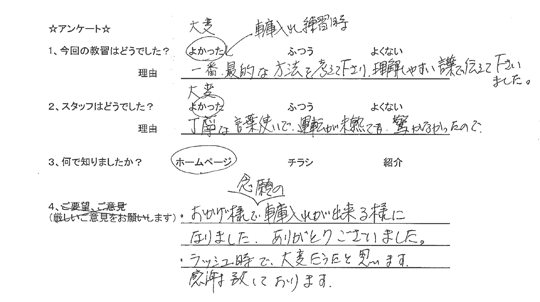 ☆アンケート☆
大変 車庫入れ練習時
1、今回の教習はどうでした? よかった ふつう よくない
理由 一番、最的な方法を考えて下さり、理解しやすい言葉で伝えて下さいました。
大変
2、スタッフはどうでした? よかった ふつう よくない
理由 丁寧な言葉使いで、運転が未熟でも、驚かなかったので、
3、何で知りましたか? ホームページ チラシ 紹介
念願の
4、ご要望、ご意見
(厳しいご意見をお願いします)
・おかげ様で車庫入れが出来る様に
なりました、ありがとうございました。
・ラッシュ時で、大変だったと思います。
感謝致しております。